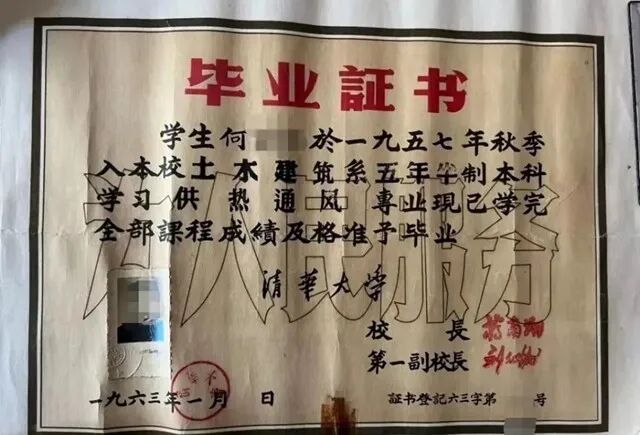 毕业証书
学生何 於一九五七年秋季
入本校土木建筑系五年半制本科
学习供热通风專业现已学完
全部課程成績及格准予毕业
为人民服务
清華大学
校長 蔣南翔
第一副校長 刘仙洲
一九六三年一月 日
証书登記六三字第 号